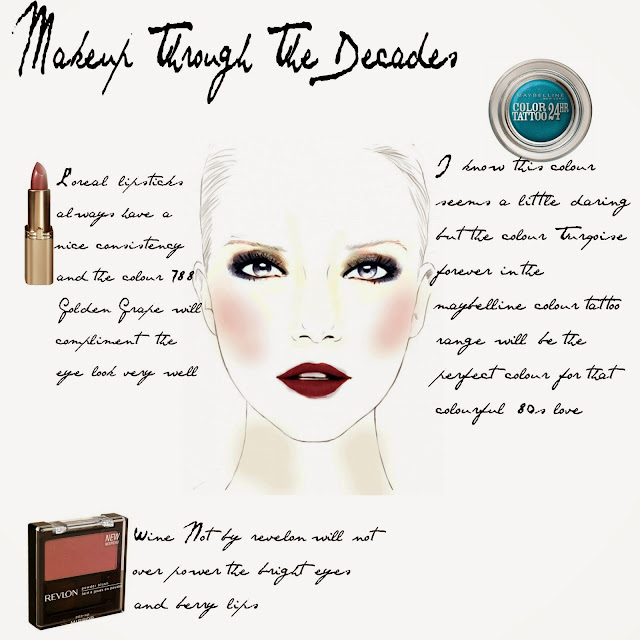 Makeup Through The Decades
MAYBELLINE
COLOR
TATTOO 24HR
Loreal lipsticks
always have a
nice consistency
and the colour 788
Golden Grape will
compliment the
eye look very well
I know this colour
seems a little daring
but the colour Turqoise
forever in the
maybelline colour tattoo
range will be the
perfect colour for that
colourful 80s love
NEW
REVLON
powder blush
Wine Not by revelon will not
over power the bright eyes
and berry lips